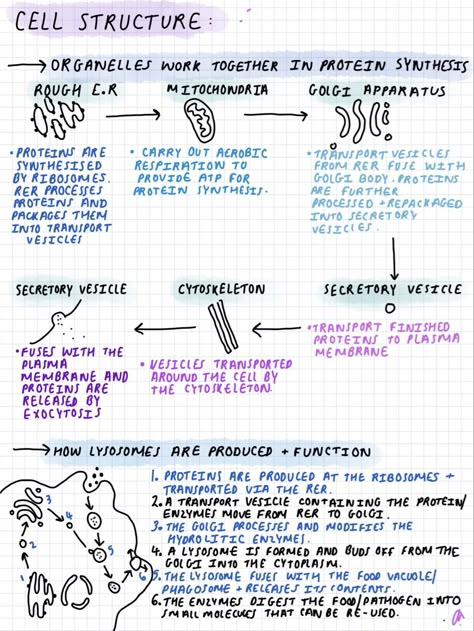 CELL STRUCTURE:
→ ORGANELLES WORK TOGETHER IN PROTEIN SYNTHESIS
ROUGH E.R
• PROTEINS ARE
SYNTHESISED
BY RIBOSOMES.
RER PROCESSES
PROTEINS AND
PACKAGES THEM
INTO TRANSPORT
VESICLES
MITOCHONDRIA
• CARRY OUT AEROBIC
RESPIRATION TO
PROVIDE ATP FOR
PROTEIN SYNTHESIS.
GOLGI APPARATUS
• TRANSPORT VESICLES
FROM RER FUSE WITH
GOLGI BODY. PROTEINS
ARE FURTHER
PROCESSED + REPACKAGED
INTO SECRETORY
VESICLES.
SECRETORY VESICLE
• TRANSPORT FINISHED
PROTEINS TO PLASMA
MEMBRANE
CYTOSKELETON
• VESICLES TRANSPORTED
AROUND THE CELL BY
THE CYTOSKELETON.
SECRETORY VESICLE
• FUSES WITH THE
PLASMA
MEMBRANE AND
PROTEINS ARE
RELEASED BY
EXOCYTOSIS
→ HOW LYSOSOMES ARE PRODUCED + FUNCTION
1. PROTEINS ARE PRODUCED AT THE RIBOSOMES +
TRANSPORTED VIA THE RER.
2. A TRANSPORT VESICLE CONTAINING THE PROTEIN/
ENZYMES MOVE FROM RER TO GOLGI.
3. THE GOLGI PROCESSES AND MODIFIES THE
HYDROLITIC ENZYMES.
4. A LYSOSOME IS FORMED AND BUDS OFF FROM THE
GOLGI INTO THE CYTOPLASM.
5. THE LYSOSOME FUSES WITH THE FOOD VACUOLE/
PHAGOSOME + RELEASES ITS CONTENTS.
6. THE ENZYMES DIGEST THE FOOD/PATHOGEN INTO
SMALL MOLECULES THAT CAN BE RE-USED.
1
2
3
4
5
6